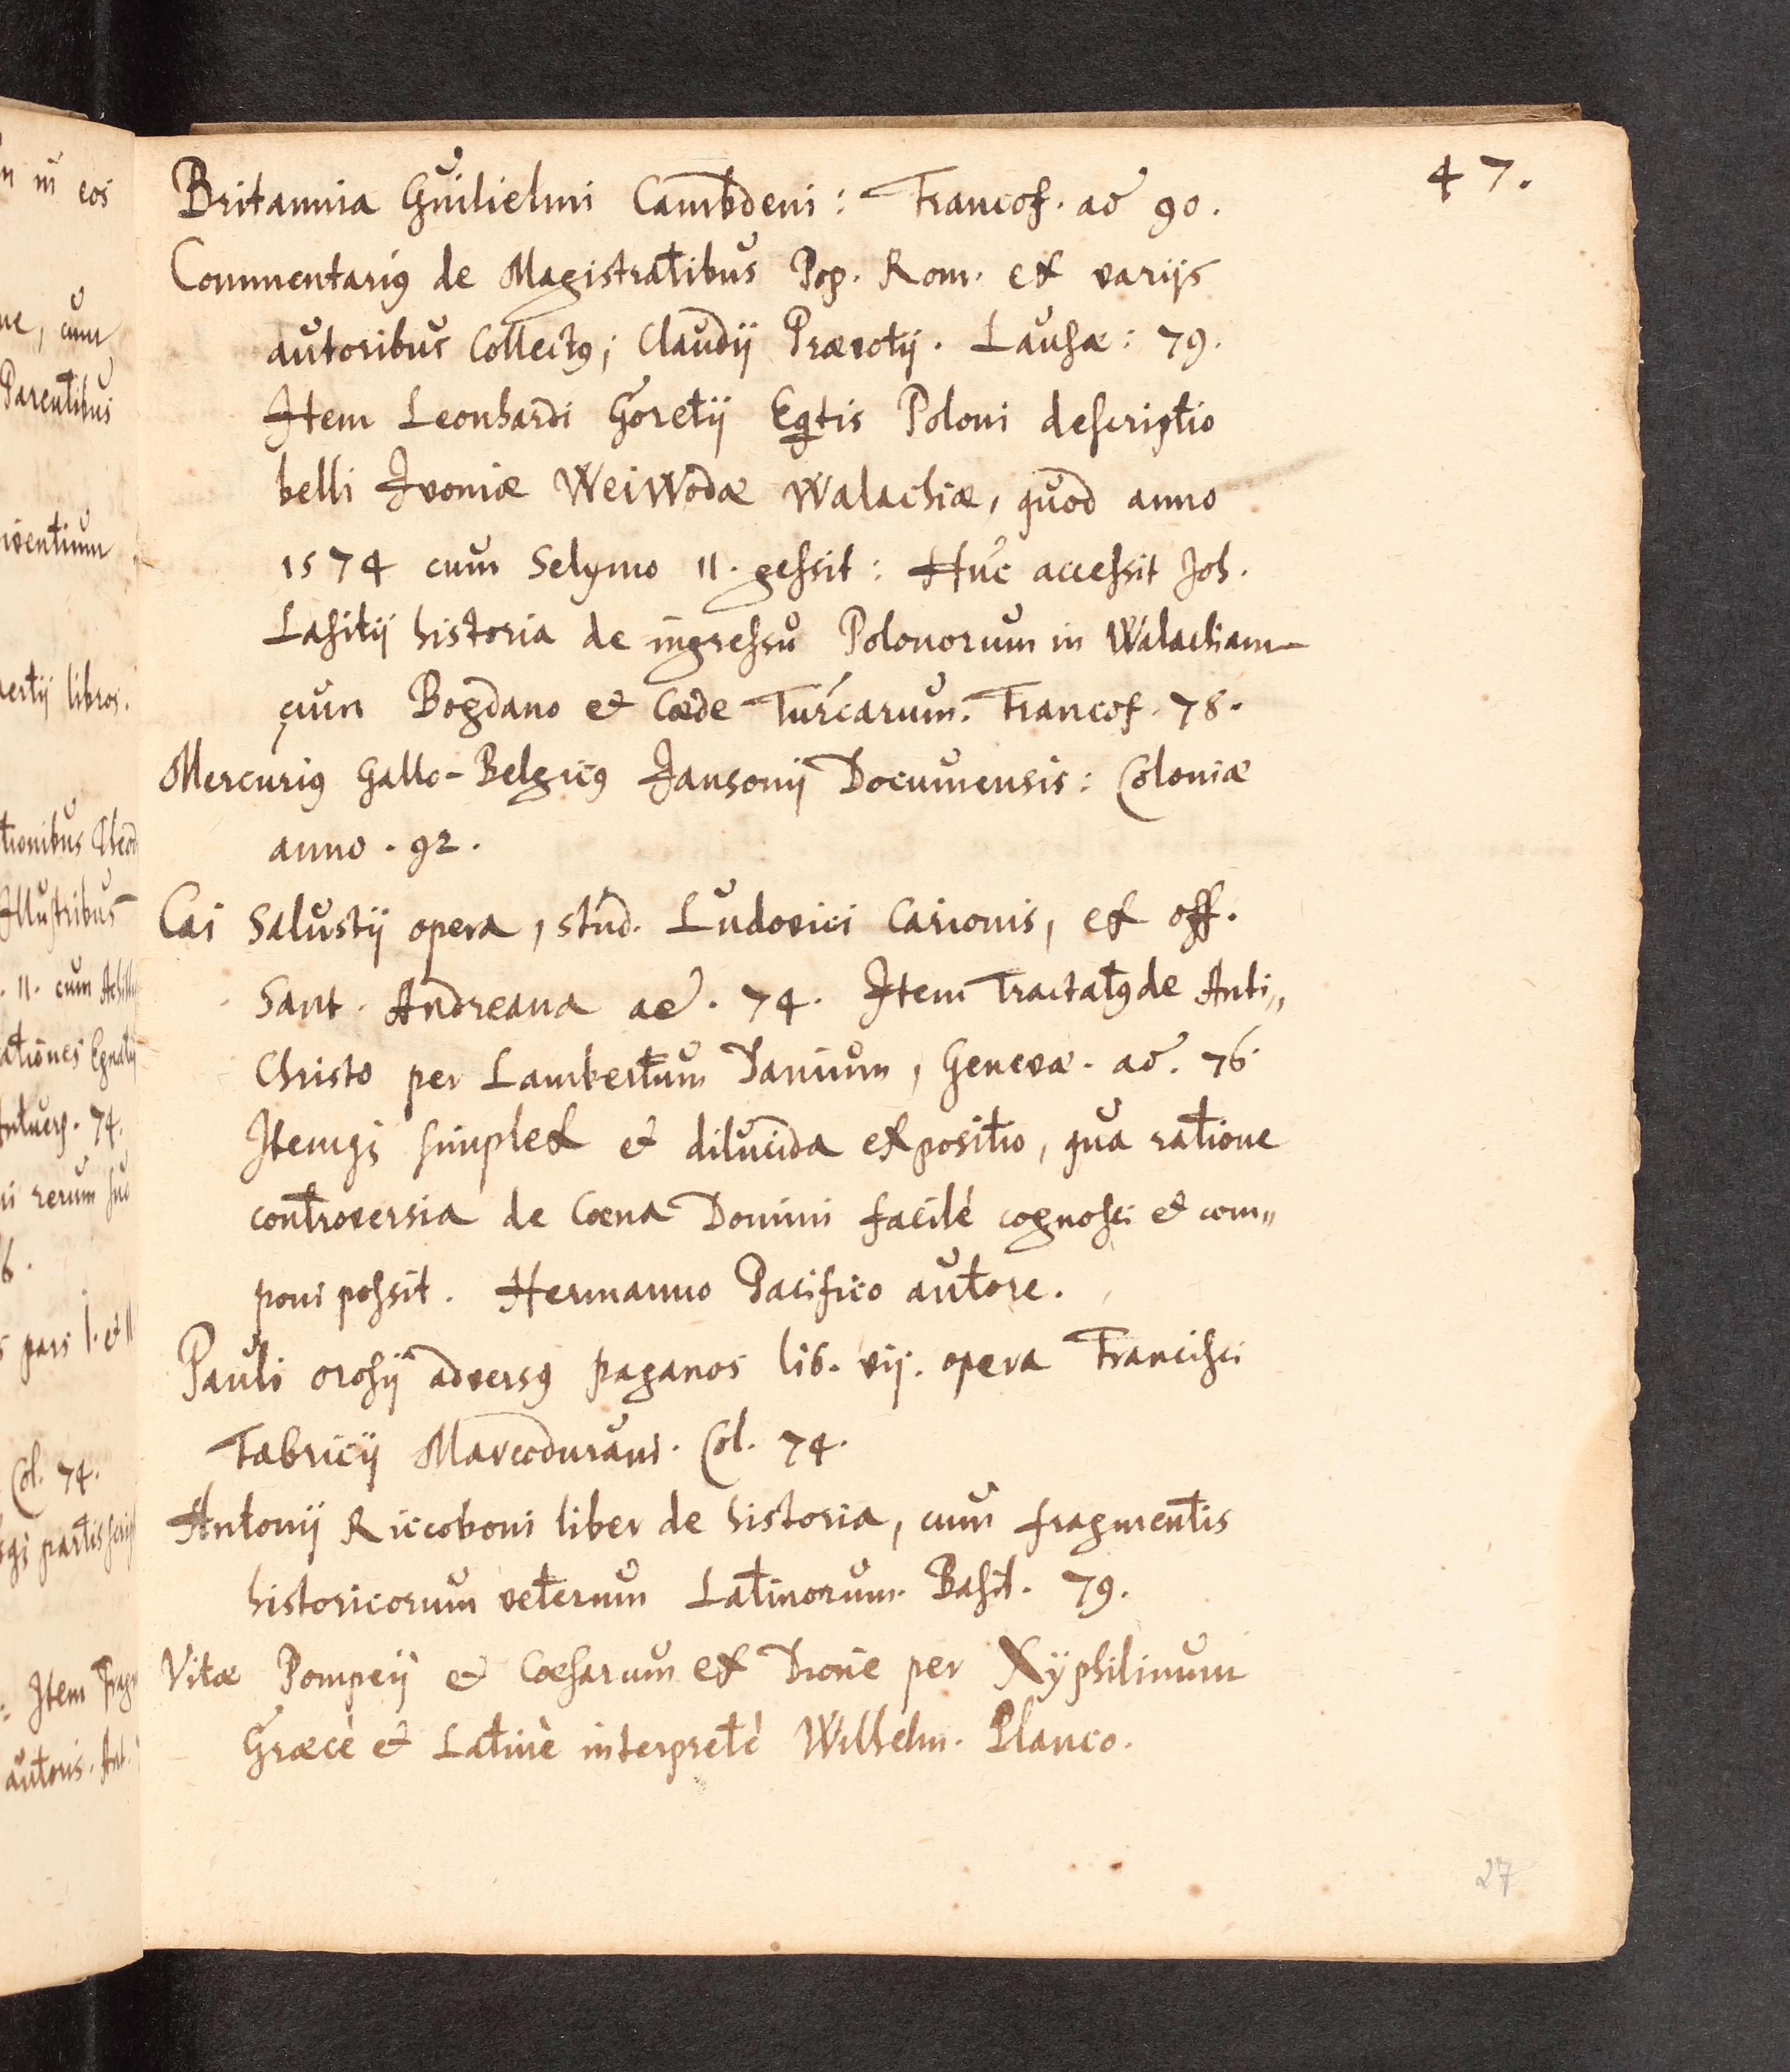 47.
Britannia Guilielmi Cambdeni: Francof. ao 90.
Commentarius de Magistratibus Pop. Rom. ex varijs
autoribus Collectus; Claudij Prævotij. Lausæ: 79.
Item Leonhardi Goretij Eqtis Poloni descriptio
belli Ivoniæ Weiwodæ Walachiæ, quod anno
1574 cum Selymo II. gessit: Huc accessit Joh.
Lasitij historia de ingressu Polonorum in Walachiam
cum Bogdano et Cæde Turcarum. Francof. 78.
Mercurius Gallo-Belgicus Jansonij Documensis: Coloniæ
anno. 92.
Cai Salustij opera, stud. Ludovici Carionis, ex off.
Sant. Andreana ao. 74. Item Tractatus de Anti„
Christo per Lambertum Danium, Genevæ. ao. 76.
Itemq; simplex et dilucida expositio, qua ratione
controversia de Cœna Domini facilè cognosci et com„
poni possit. Hermanno Pacifico autore.
Pauli orosij adversus paganos lib. vij. opera Francisci
Fabricij Marcodurani. Col. 74.
Antonij Riccoboni liber de historia, cum fragmentis
historicorum veterum Latinorum. Basil. 79.
Vitæ Pompeij et Cæsarum ex Dione per Xyphilinum
Græcè et Latinè interpretè Wilhelm. Blanco.
27